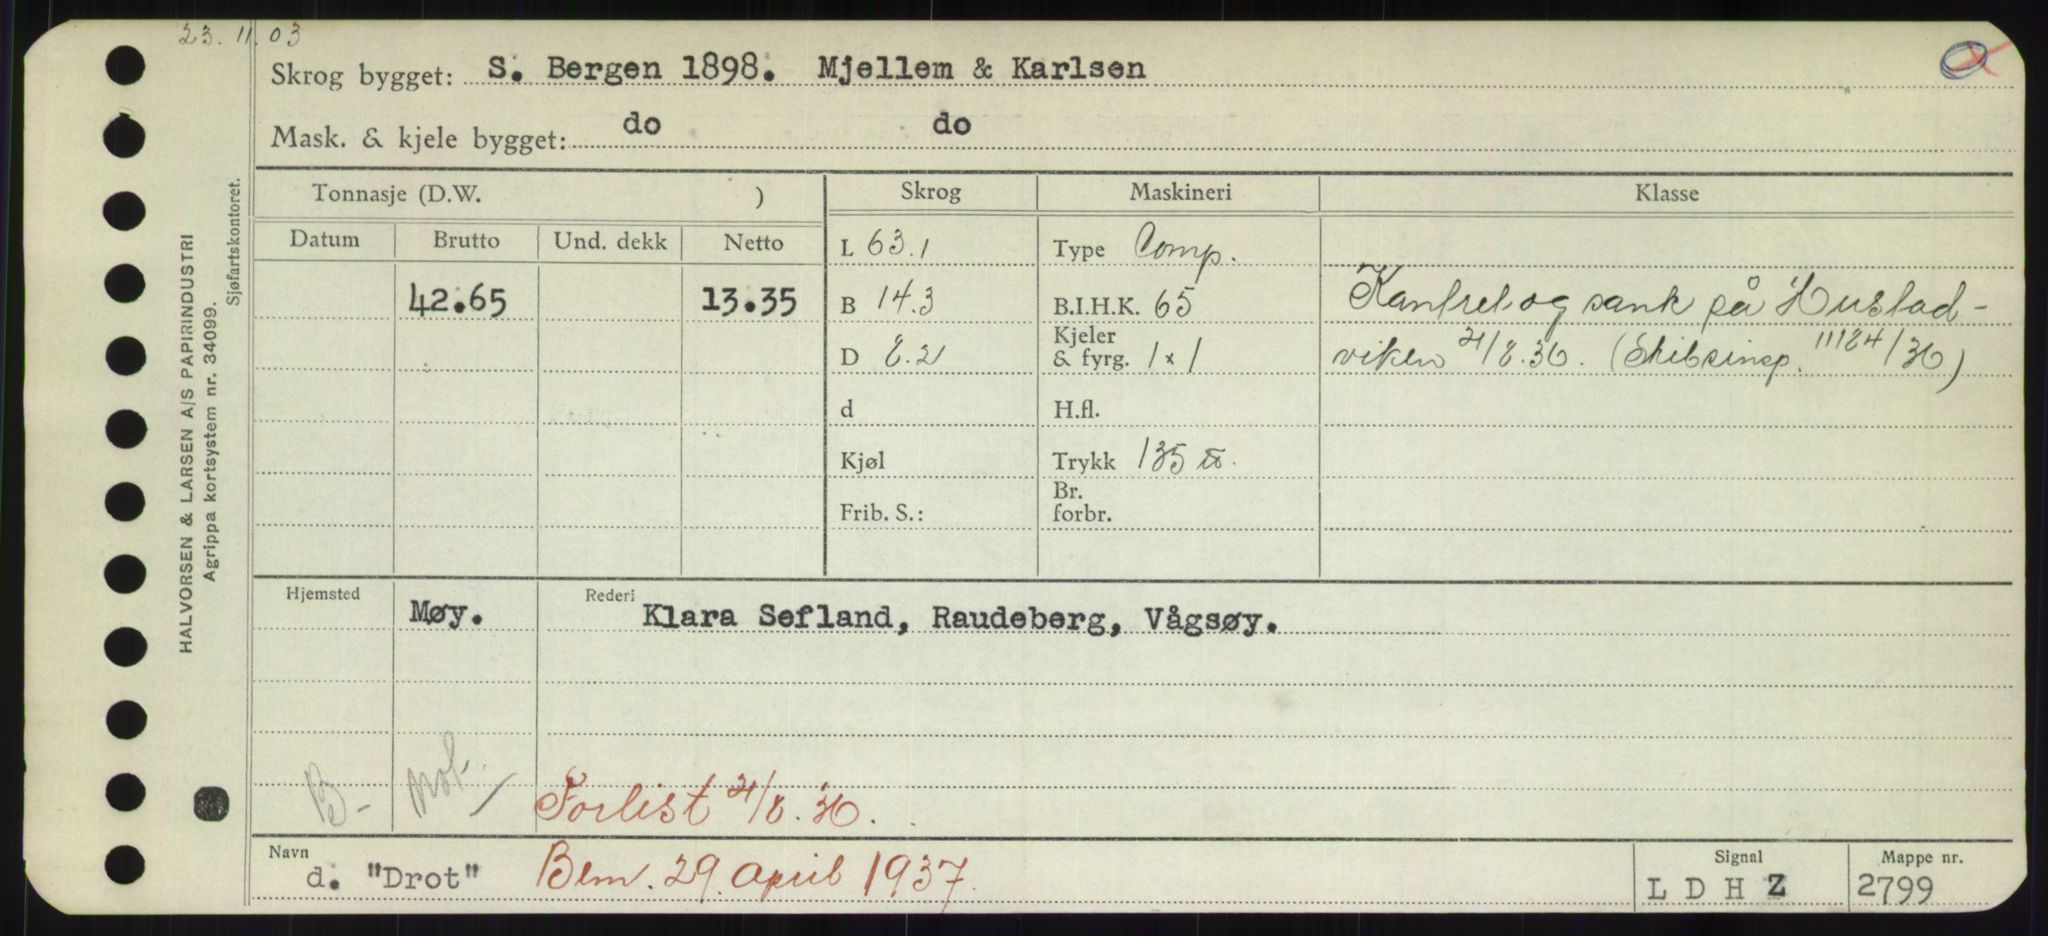 23.11.03
Skrog bygget: S. Bergen 1898. Mjellem & Karlsen
Mask. & kjele bygget: do do
HALVORSEN & LARSEN A/S PAPIRINDUSTRI
Agrippa kortsystem nr. 34099.
Sjøfartskontoret.
Tonnasje (D.W. ) Skrog Maskineri Klasse
Datum Brutto Und. dekk Netto L 63.1 Type Comp.
42.65 13.35 B 14.3 B.I.H.K. 65 Kantret og sank på Hustad-
D 8.2 Kjeler & fyrg. 1x1 viken 21/8.36. (Skibsinsp. 11184/36)
d H.fl.
Kjøl Trykk 135 lb.
Frib. S.: Br. forbr.
Hjemsted Møy. Rederi Klara Sefland, Raudeberg, Vågsøy.
B- not.
Forlist 21/8.36.
Navn d. "Drot" Blm. 29. april 1937. Signal LDHZ Mappe nr. 2799